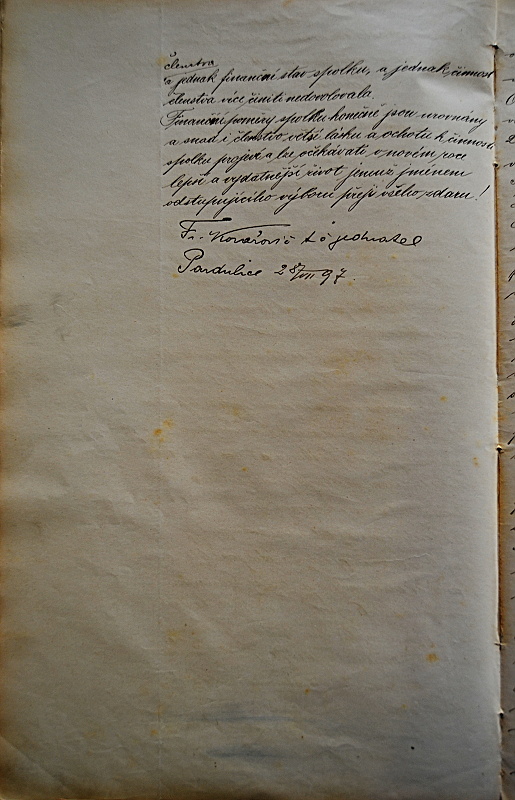 členstva
a jednak finanční stav spolku, a jednak činnost
členstva více činiti nedovolovala.
Finanční poměry spolku konečně jsou urovnány
a snad i členstvo větší lásku a ochotu k činnosti
spolku projeví a lze očekávati v novém roce
lepší a vydatnější život jemuž jménem
odstupujícího výboru přeji všeho zdaru!
Fr. Kovářovič t č jednatel
Pardubice 28/XII 97.